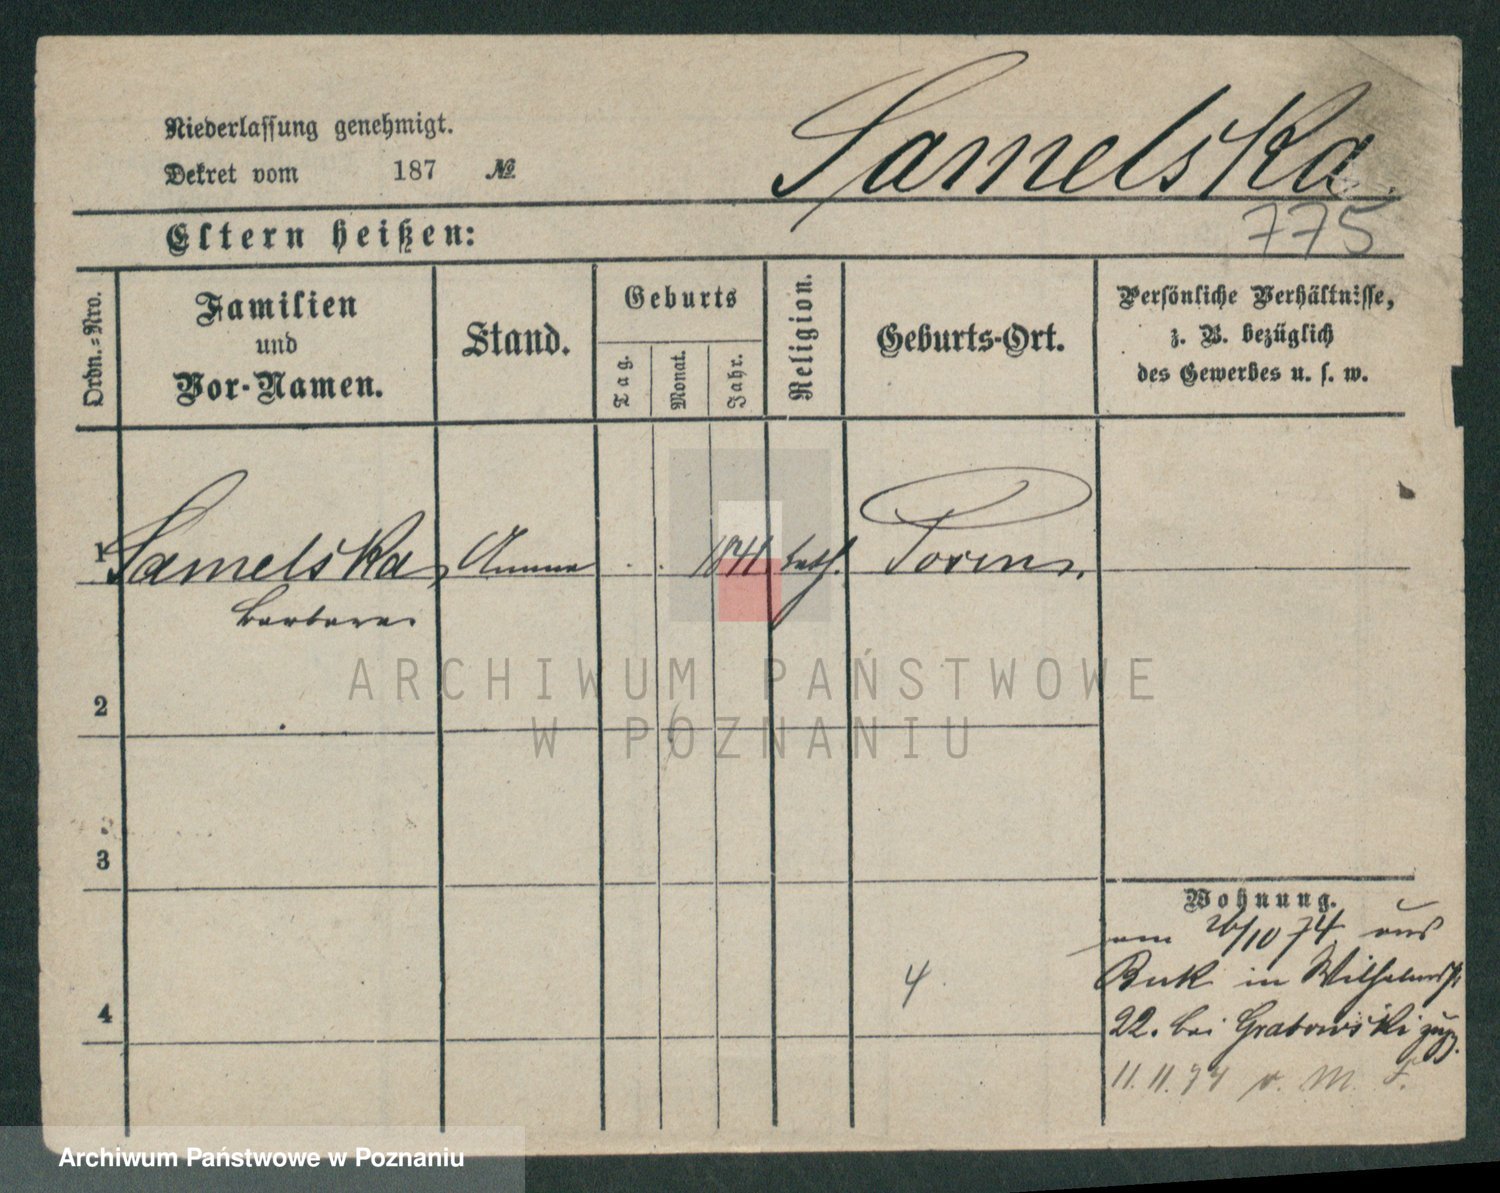 Niederlassung genehmigt.
Dekret vom 187 №
Samelska
775
Eltern heißen:
Ordn.-Nro.
Familien
und
Vor-Namen.
Stand.
Geburts
Tag.
Monat.
Jahr.
Religion.
Geburts-Ort.
Persönliche Verhältnisse,
z. B. bezüglich
des Gewerbes u. s. w.
1 Samelska, Amme 1841 kath.
Barbara
2
3
4
Wohnung.
am 26/10 74 aus
Buk in Wilhelmsstr
22. bei Grabowski zugz.
4
11.11.74 v. M. F.
ARCHIWUM PAŃSTWOWE
W POZNANIU
Archiwum Państwowe w Poznaniu